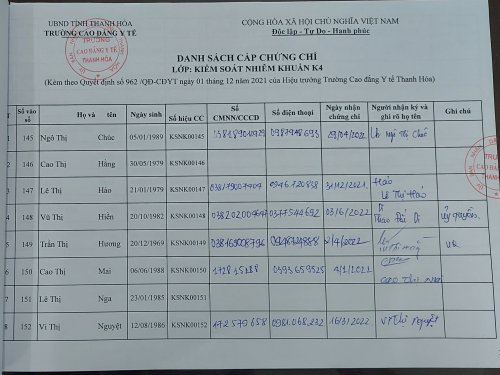 UBND TỈNH THANH HÓA
CỘNG HÒA XÃ HỘI CHỦ NGHĨA VIỆT NAM
TRƯỜNG CAO ĐẲNG Y TẾ
Độc lập - Tự Do - Hạnh phúc
TRƯỜNG
CAO ĐẲNG Y TẾ
THANH HÓA
DANH SÁCH CẤP CHỨNG CHỈ
LỚP: KIỂM SOÁT NHIỄM KHUẨN K4
(Kèm theo Quyết định số 962 /QĐ-CĐYT ngày 01 tháng 12 năm 2021 của Hiệu trưởng Trường Cao đẳng Y tế Thanh Hóa)
Số vào sổ Họ và tên Ngày sinh Số hiệu CC Số CMNN/CCCD Số điện thoại Ngày nhận chứng chỉ Người nhận ký và ghi rõ họ tên Ghi chú
1 145 Ngô Thị Chúc 05/01/1989 KSNK00145 0987948693 29/04/2022
2 146 Cao Thị Hằng 30/05/1979 KSNK00146
3 147 Lê Thị Hảo 21/01/1979 KSNK00147 0946720838 31/12/2021 Hảo
Lê Thị Hảo
4 148 Vũ Thị Hiền 20/10/1982 KSNK00148 0377544692 03/6/2022 Di
5 149 Trần Thị Hương 20/12/1969 KSNK00149 038169008796 /4/2022
6 150 Cao Thị Mai 06/06/1988 KSNK00150 0393659525 4/1/2022
7 151 Lê Thị Nga 23/01/1985 KSNK00151
8 152 Vi Thị Nguyệt 12/08/1986 KSNK00152 172579658 0981.068.232 16/3/2022 Vi Thị Nguyệt